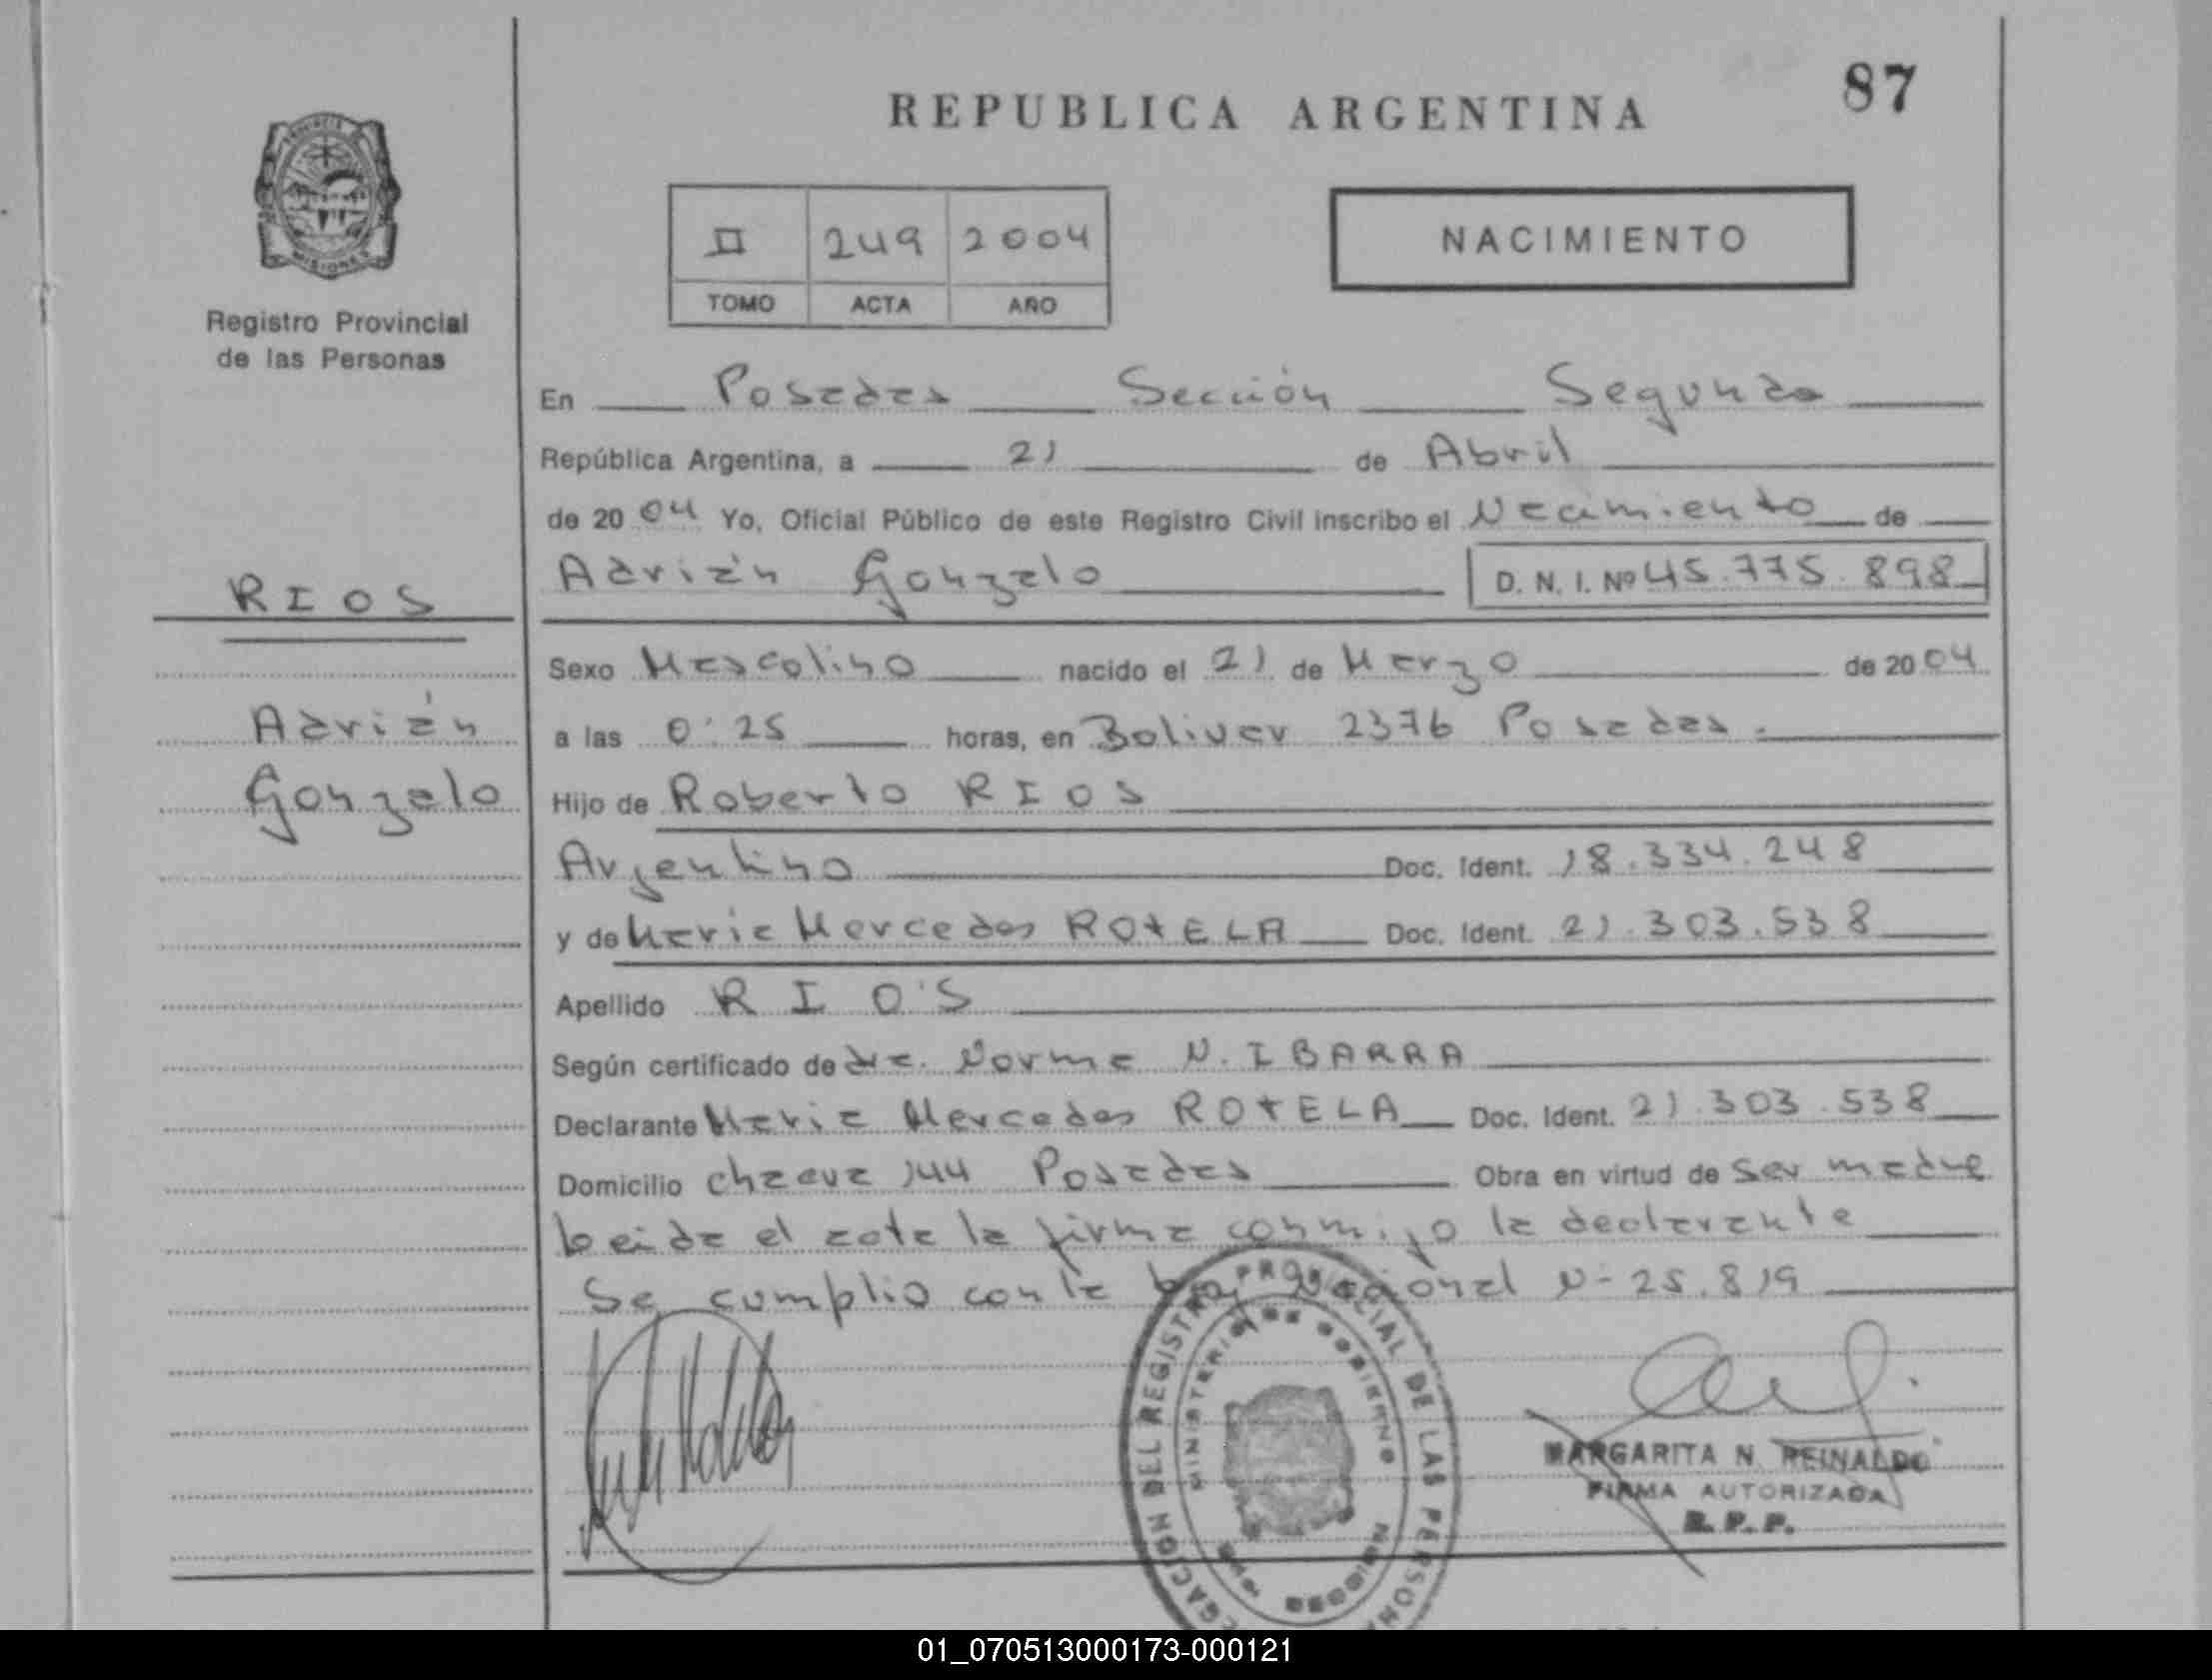 87
REPUBLICA ARGENTINA
II 249 2004
TOMO ACTA AÑO
NACIMIENTO
PROVINCIA DE
MISIONES
Registro Provincial
de las Personas
RIOS
Adrián
Gonzalo
En Posadas Sección Segunda
República Argentina, a 21 de Abril
de 2004 Yo, Oficial Público de este Registro Civil inscribo el Nacimiento de
Adrián Gonzalo D. N. I. Nº 45.775.898
Sexo Masculino nacido el 21 de Marzo de 2004
a las 0:25 horas, en Bolivar 2376 Posadas.
Hijo de Roberto RIOS
Argentino Doc. Ident. 18.334.248
y de Maria Mercedes ROTELA Doc. Ident. 21.303.538
Apellido RIOS
Según certificado de dra. Norma N. IBARRA
Declarante Maria Mercedes ROTELA Doc. Ident. 21.303.538
Domicilio 144 Posadas Obra en virtud de ser madre
Leida el acta la firma conmigo la declarante
Se cumplio con la Ley Nacional N- 25.819
DEL REGISTRO PROVINCIAL DE LAS PERSONAS
MINISTERIO DE GOBIERNO
MISIONES
MARGARITA N. REINALDO
FIRMA AUTORIZADA
R. P. P.
01_070513000173-000121